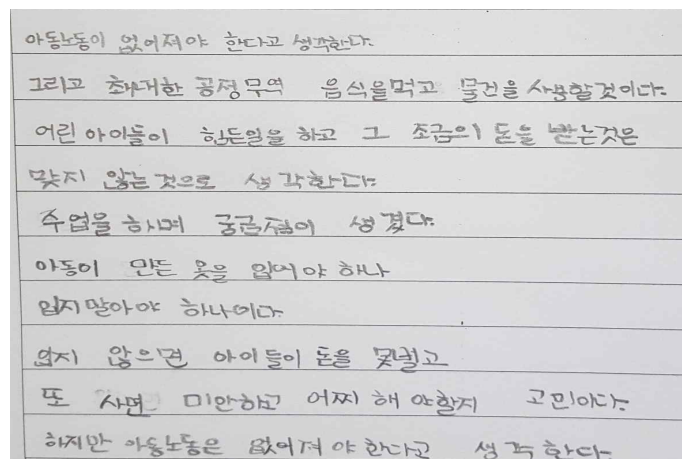 아동노동이 없어져야 한다고 생각한다.
그리고 최대한 공정무역 음식을먹고 물건을 사용할것이다.
어린 아이들이 힘든일을 하고 그 조금의 돈을 받는것은
맞지 않는 것으로 생각한다.
수업을 하며 궁금점이 생겼다.
아동이 만든 옷을 입어야 하나
입지말아야 하나이다.
입지 않으면 아이들이 돈을 못벌고
또 사면 미안하고 어찌 해야할지 고민이다.
하지만 아동노동은 없어져야한다고 생각한다.